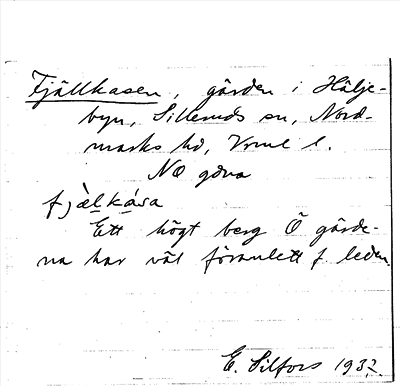 Fjällkasen, gården i Hålje-
byn, Silleruds sn, Nord-
marks hd, Vrml l.
NO gdna
fjàlkása
Ett högt berg Ö gårde-
na har väl föranlett f. leden.
E. Silfors 1932.